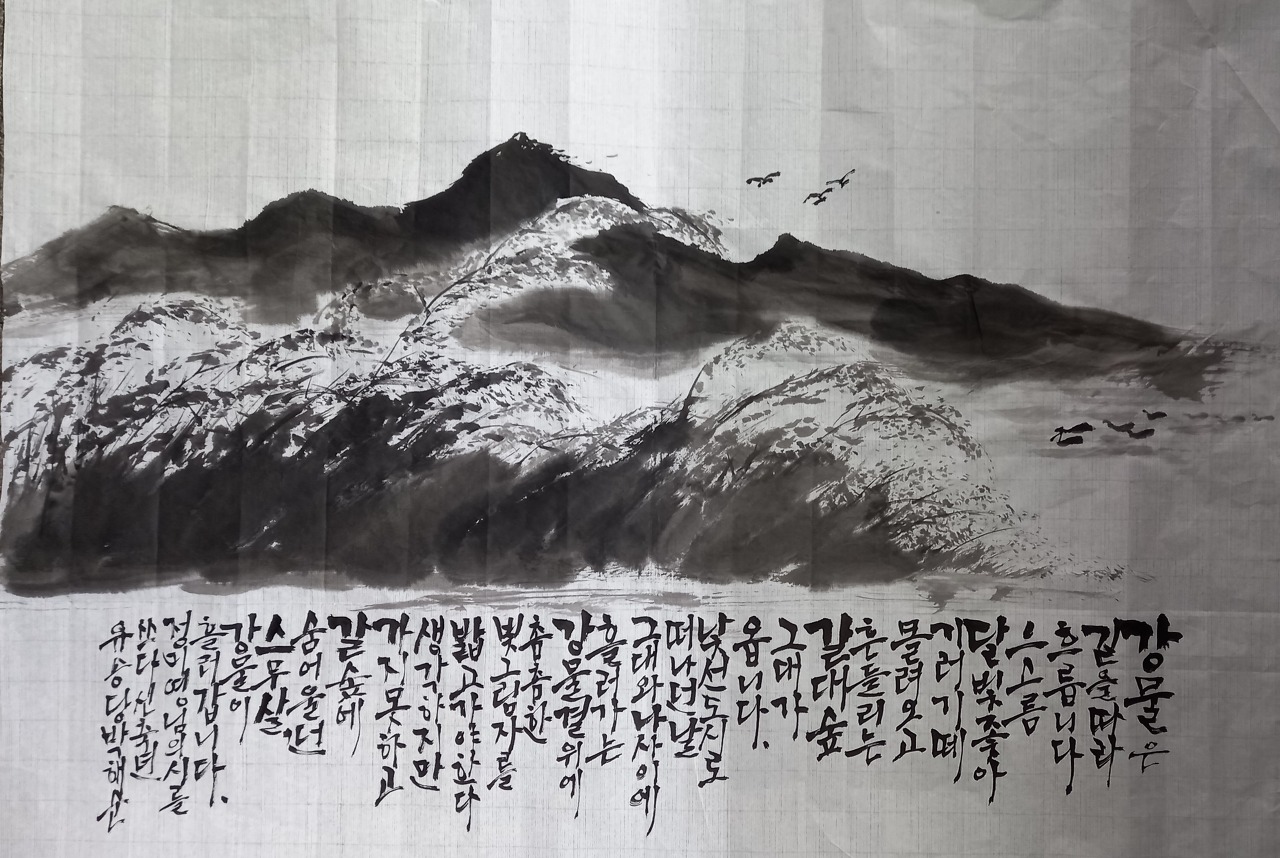 강물은
길을따라
흐릅니다
으스름
달빛좇아
기러기떼
몰려오고
흔들리는
갈대숲
그대가
웁니다.
낯선도시로
떠나던날
그대와나사이에
흘러가는
강물결위에
촘촘한
빛그림자를
밟고가야한다
생각하지만
가지못하고
갈숲에
숨어울던
스무살,
강물이
흘러갑니다.
정미영님의시를
쓰다신축년
유승당박해